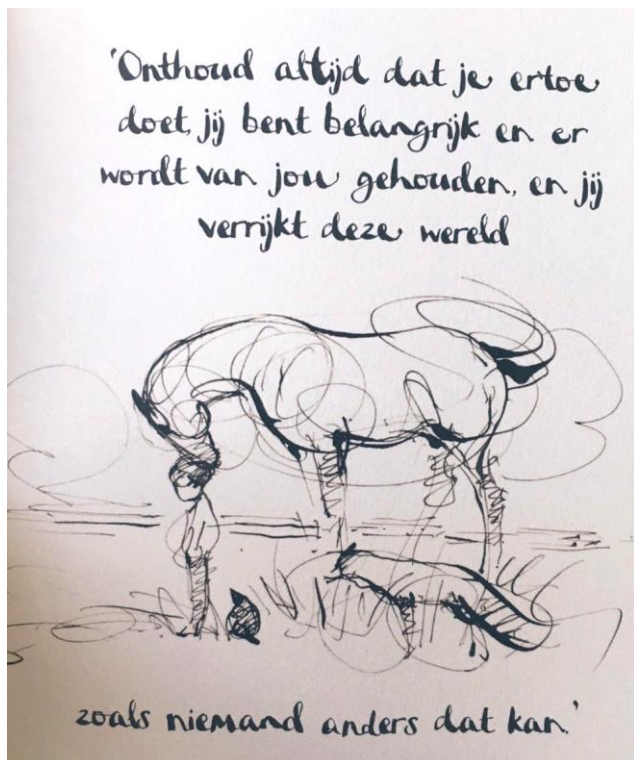 'Onthoud altijd dat je ertoe
doet, jij bent belangrijk en er
wordt van jou gehouden, en jij
verrijkt deze wereld
zoals niemand anders dat kan.'